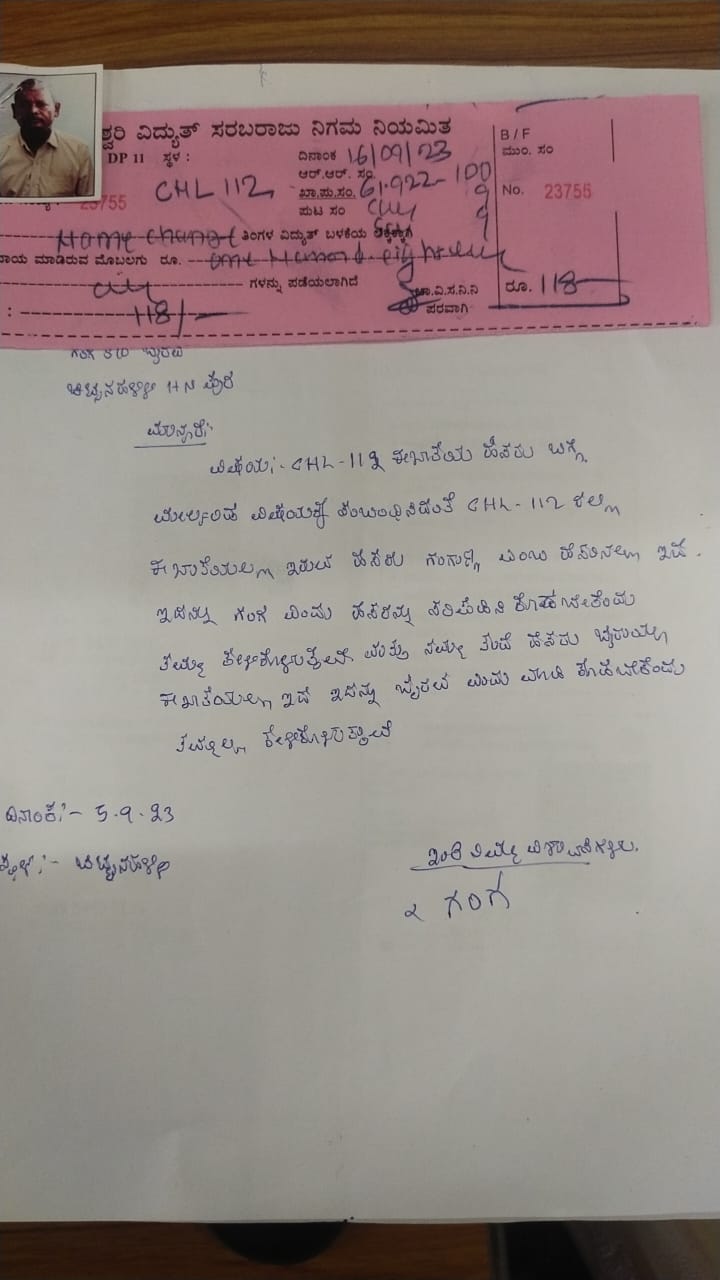 ಶ್ವರಿ ವಿದ್ಯುತ್ ಸರಬರಾಜು ನಿಗಮ ನಿಯಮಿತ
DP 11 ಸ್ಥಳ :
ದಿನಾಂಕ 16/09/23
ಆರ್.ಆರ್. ಸಂ.
23755
CHL 112
ಖಾ.ಪು.ಸಂ. 61.922-100
ಪುಟ ಸಂ
ತಿಂಗಳ ವಿದ್ಯುತ್ ಬಳಕೆಯ ಲೆಕ್ಕಕ್ಕಾಗಿ
ರಾಯ ಮಾಡಿರುವ ಮೊಬಲಗು ರೂ.
ಗಳನ್ನು ಪಡೆಯಲಾಗಿದೆ
ಚಾ.ವಿ.ಸ.ನಿ.ನಿ
: 118/-
ಪರವಾಗಿ
B/F
ಮುಂ. ಸಂ
No. 23755
ರೂ. 118
ಗಂಗ S/O ಭೈರವ
ಚಿಟ್ಟನಹಳ್ಳಿ HN ಪುರ
ಮಾನ್ಯರೇ:
ವಿಷಯ:- CHL-112 ಈ ಖಾತೆಯ ಹೆಸರು ಬಗ್ಗೆ
ಮೇಲ್ಕಂಡ ವಿಷಯಕ್ಕೆ ಸಂಬಂಧಿಸಿದಂತೆ CHL-112 ರಲ್ಲಿ
ಈ ಖಾತೆಯಲ್ಲಿ ಇರುವ ಹೆಸರು ಎಂಬ ಹೆಸರಿನಲ್ಲಿ ಇದೆ.
ಇದನ್ನು ಗಂಗ ಎಂದು ಹೆಸರನ್ನು ಸರಿಪಡಿಸಿ ಕೊಡಬೇಕೆಂದು
ತಮ್ಮ ಕೇಳಿಕೊಳ್ಳುತ್ತೇನೆ ಮತ್ತು ನಮ್ಮ ತಂದೆ ಹೆಸರು
ಈ ಖಾತೆಯಲ್ಲಿ ಇದೆ ಇದನ್ನು ಭೈರವ ಎಂದು ಮಾಡಿ ಕೊಡಬೇಕೆಂದು
ತಮ್ಮಲ್ಲಿ ಕೇಳಿಕೊಳ್ಳುತ್ತೇನೆ
ದಿನಾಂಕ:- 5-9-23
ಸ್ಥಳ:- ಚಿಟ್ಟನಹಳ್ಳಿ
ಇಂತಿ ನಿಮ್ಮ
ಗಂಗ